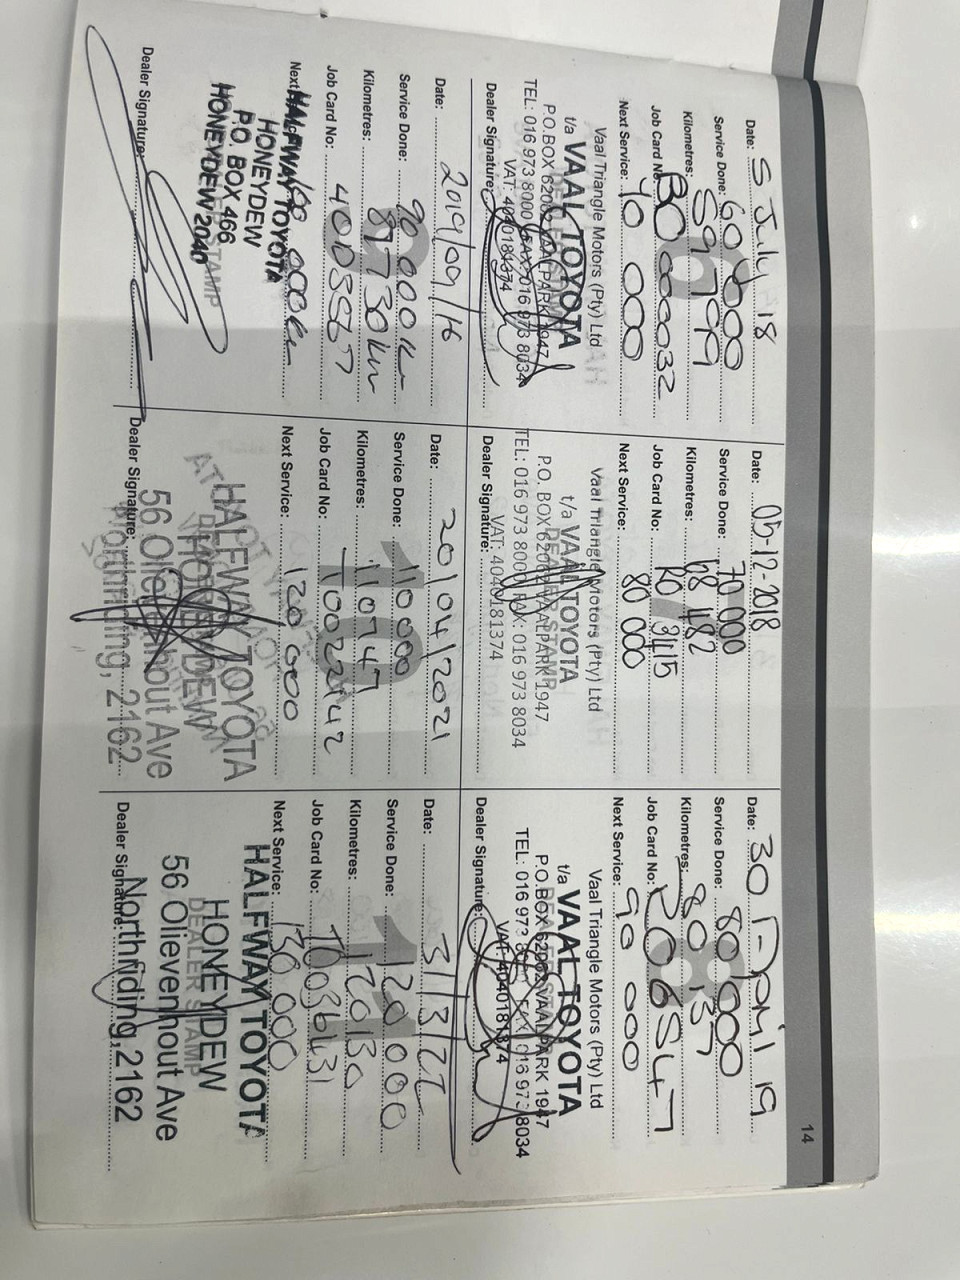 14
Date: 5 July 18
Service Done: 60 000
Kilometres: 59799
Job Card No:
Next Service: 70 000
Vaal Triangle Motors (Pty) Ltd
t/a VAAL TOYOTA
P.O.BOX 62082 VAALPARK 1947
TEL: 016 973 8000 FAX: 016 973 8034
VAT: 4040181374
Dealer Signature:
Date: 05-12-2018
Service Done: 70 000
Kilometres: 68 482
Job Card No:
Next Service: 80 000
Vaal Triangle Motors (Pty) Ltd
t/a VAAL TOYOTA
DEALER STAMP
P.O. BOX 62082 VAALPARK 1947
TEL: 016 973 8000 FAX: 016 973 8034
VAT: 4040181374
Dealer Signature:
Date: 30 April 19
Service Done: 80 000
Kilometres: 80 137
Job Card No: 2066547
Next Service: 90 000
Vaal Triangle Motors (Pty) Ltd
t/a VAAL TOYOTA
P.O.BOX 62082 VAALPARK 1947
TEL: 016 973 8000 FAX 016 973 8034
VAT: 4040181374
Dealer Signature:
Date: 2019/09/16
Service Done: 90 000km
9
Kilometres: 89730km
Job Card No:
Next
HALFWAY TOYOTA
HONEYDEW
P.O. BOX 466
HONEYDEW 2040
DEALER STAMP
Dealer Signature:
Date: 20/04/2021
Service Done: 110 000
10
Kilometres: 110747
Job Card No:
Next Service: 120 000
HALFWAY TOYOTA
HONEYDEW
56 Olievenhout Ave
Northriding, 2162
Dealer Signature:
Date: 31/3/22
Service Done: 120 000
11
Kilometres: 120130
Job Card No:
Next Service: 130 000
HALFWAY TOYOTA
HONEYDEW
DEALER STAMP
56 Olievenhout Ave
Northriding, 2162
Dealer Signature: